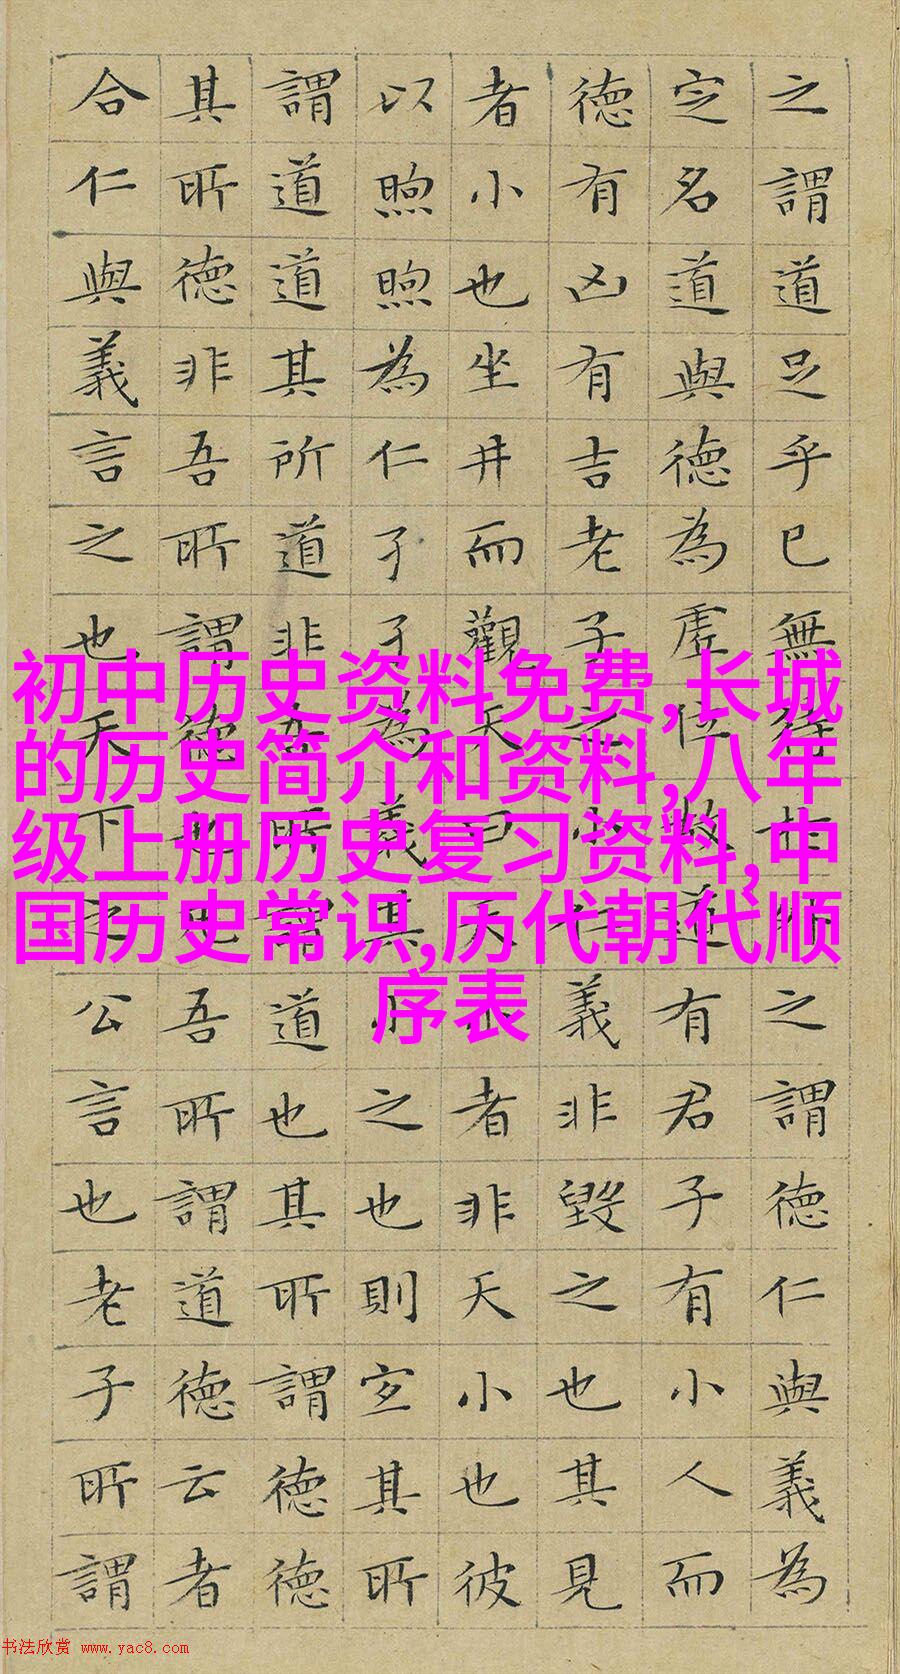 之謂道足乎已無待於外之謂德仁與義為
定名道與德為虛位故道有君子有小人而
德有凶有吉老子之小仁義非毀之也其見
者小也坐井而觀天曰天小者非天小也彼
以煦煦為仁孑孑為義其小之也則宜其所
謂道道其所道非吾所謂道也其所謂德德
其所德非吾所謂德也凡吾所謂道德云者
合仁與義言之也天下之公言也老子所謂
初中历史资料免费,长城
的历史简介和资料,八年
级上册历史复习资料,中
国历史常识,历代朝代顺
序表
书法欣赏 www.yac8.com